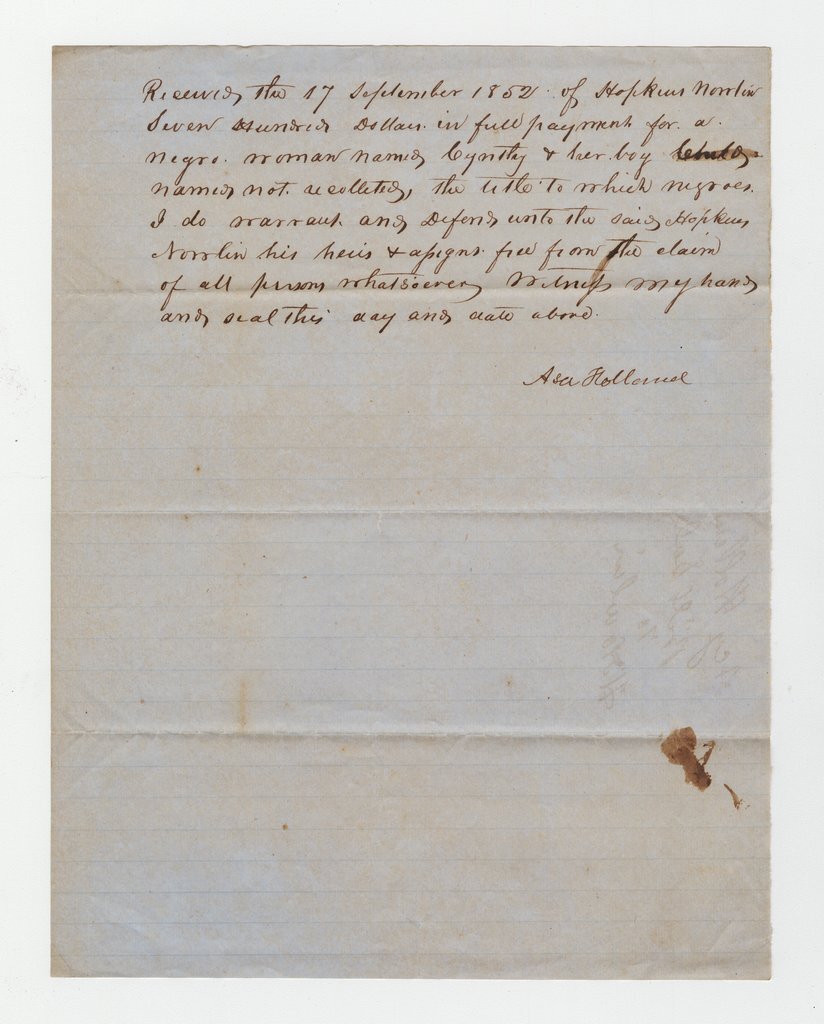 Received the 17 September 1852 of Hopkins Nowlin
Seven Hundred Dollars in full payment for a
negro woman named Cynthy & her boy Child
named not recollected, the title to which negroes
I do warrant and Defend unto the said Hopkins
Nowlin his heirs & assigns free from the claim
of all persons whatsoever, Witness my hand
and seal this day and date above.
Asa Holland